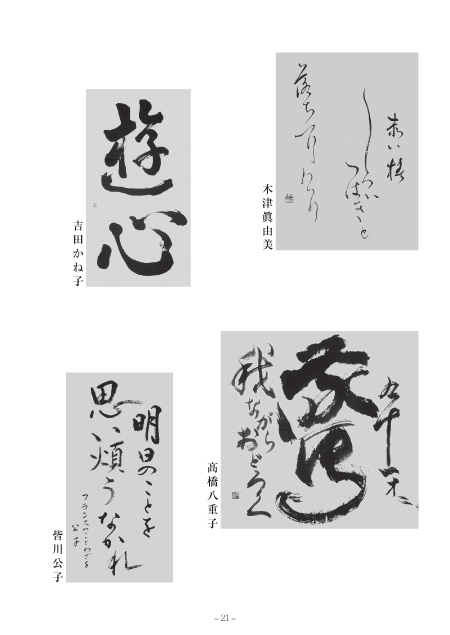 赤い椿
しろいつばきと
落ちにけり
木津眞由美
遊心
吉田かね子
九十
我ながら
おどろく
高橋八重子
明日のことを
思い煩うなかれ
フランスのことわざ
公子
皆川公子
– 21 –